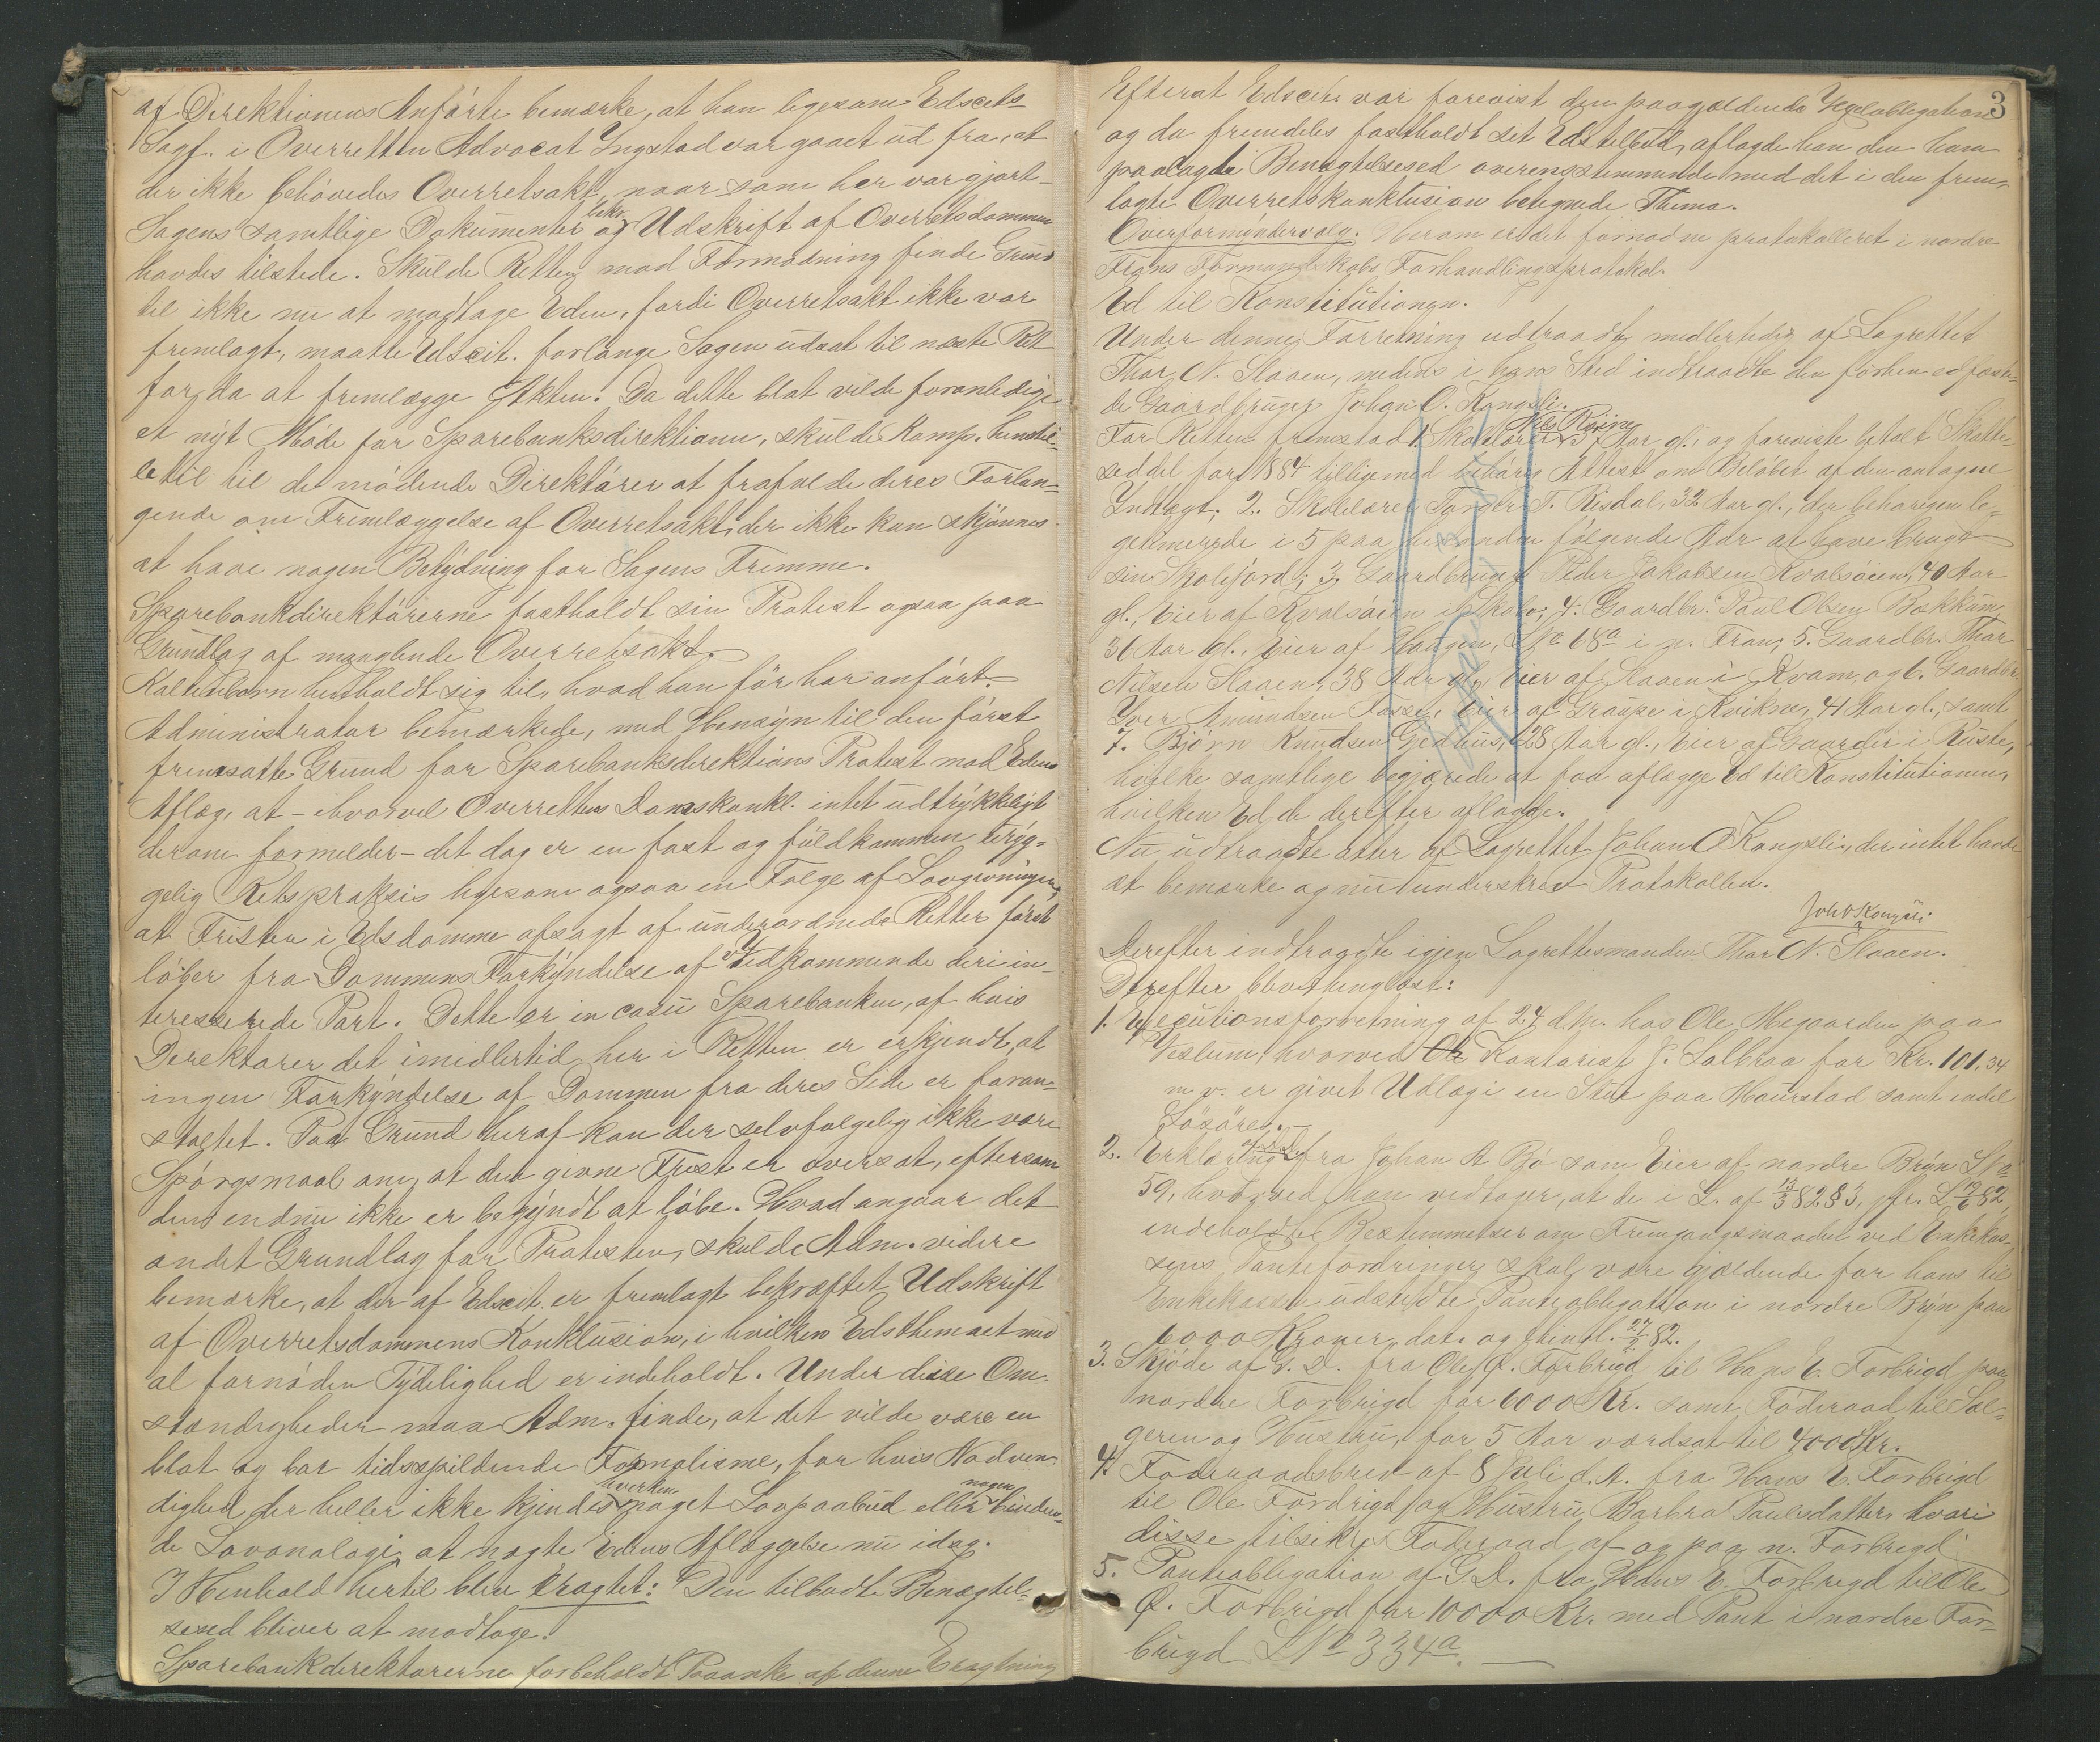 af Direktionens Anførte bemærke, at han ligesom Edscits
Sagf. i Overretten Advocat Yngstad var gaaet ud fra, at
der ikke behøvedes Overretsakt, naar som her var gjort
Sagens samtlige Dokumenter og bekr. Udskrift af Overretsdommen
havdes tilstede. Skulde Retten mod Formodning finde Grund
til ikke nu at modtage Eden, fordi Overretsakt ikke var
fremlagt, maatte Edscit. forlange Sagen udsat til næste Ret
for da at fremlægge Akten. Da dette blot vilde foranledige
et nyt Møde for Sparebanksdirektionen, skulde Komp. henstil-
le til de mødende Direktører at frafalde deres Forlan-
gende om Fremlæggelse af Overretsakt, der ikke kan skjønnes
at have nogen Betydning for Sagens Fremme.
Sparebankdirektørerne fastholdt sin Protest ogsaa paa
Grundlag af manglende Overretsakt.
Kaltenborn henholdt sig til, hvad han før har anført.
Administrator bemærkede, med Hensyn til den først
fremsatte Grund for Sparebanksdirektions Protest mod Edens
Aflæg, at - ihvorvel Overrettens Domskonkl. intet udtrykkeligt
derom formelder - det dog er en fast og fuldkommen tryg-
gelig Retspraksis ligesom ogsaa en Følge af Lovgivningen,
at Fristen i Edsdomme afsagt af underordnede Retter først
løber fra Dommens Forkyndelse af vedkommende deri in-
teresserede Part. Dette er in casu Sparebanken, af hvis
Direktører det imidlertid her i Retten er erkjendt, at
ingen Forkyndelse af Dommen fra deres Side er foran-
staltet. Paa Grund heraf kan der selvfølgelig ikke være
Spørgsmaal om, at den givne Frist er oversat, eftersom
den endnu ikke er begyndt at løbe. Hvad angaar det
andet Grundlag for Protesten, skulde Adm. videre
bemærke, at der af Edscit. er fremlagt bekræftet Udskrift
af Overretsdommens Konklusion, i hvilken Edsthemaet med
al fornøden Tydelighed er indeholdt. Under disse Om-
stændigheder maa Adm. finde, at det vilde være en
blot og bar tidsspildende Formalisme, for hvis Nødven-
dighed der heller ikke kjendes hverken noget Lovpaabud eller nogen binden-
de Lovanalogi, at nægte Edens Aflæggelse nu idag.
I Henhold hertil blev eragtet: Den tilbudte Benægtel-
sesed bliver at modtage.
Sparebankdirektørerne forbeholdt Paaanke af denne Eragtning
3
Efterat Edscit. var forevist den paagjældende Vexelobligation
og da fremdeles fastholdt sit Edstilbud, aflagde han den ham
paalagte Benægtelsesed overensstemmende med det i den frem-
lagte Overretskonklusion betegnede Thema.
Overformyndervalg. Herom er det fornødne protokolleret i nordre
Frons Formandskabs Forhandlingsprotokol.
Ed til Konstitutionen.
Under denne Forretning udtraadte midlertidig af Lagrettet
Thor N. Slaaen, medens i hans Sted indtraadte den førhen edfæste-
de Gaardbruger Johan O. Kongsli.
For Retten fremstod 1. Skolelærer Nils Rønne Aar gl., og foreviste betalt Skatte-
seddel for 1884 tilligemed behørig Attest om Beløbet af den antagne
Indtægt; 2. Skolelærer Torger T. Risdal, 32 Aar gl., der behørigen le-
gitimerede i 5 paa hinanden følgende Aar at have brugt
sin Skolejord; 3. Gaardbruger Peder Jakobsen Kvalsøien, 40 Aar
gl., Eier af Kvalsøien i Skabo; 4. Gaardbr. Paul Olsen Bækkum,
36 Aar gl., Eier af Haugen, LNo 68a i n. Fron; 5. Gaardbr. Thor
Nilsen Slaaen, 38 Aar gl., Eier af Slaaen i Kvam, og 6. Gaardbr.
Iver Amundsen Fosse, Eier af Graupe i Kvikne, 41 Aar gl., samt
7. Bjørn Knudsen Gjedhus, 28 Aar gl., Eier af Gaarder i Ruste,
hvilke samtlige begjærede at faa aflægge Ed til Konstitutionen,
hvilken Ed de derefter aflagde.
Nu udtraadte atter af Lagrettet Johan O Kongsli, der intet havde
at bemærke og nu underskrev Protokollen.
Joh O Kongsli
Derefter indtraadte igjen Lagrettesmanden Thor N. Slaaen.
Derefter blev thinglæst:
1. Executionsforretning af 24 d.M. hos Ole Megaarden paa
Veslum, hvorved Kontorist J. Solbraa for Kr. 101,34
m. v. er givet Udlæg i en Stue paa Haurstad samt endel
Løsøre.
2. Erklæring fra Johan A Bø som Eier af nordre Bryn LNo
59, hvorved han vedtager, at de i L. af 13/3 82 § 3, jfr. L 13/6 82,
indeholdte Bestemmelser om Fremgangsmaaden ved Enkekas-
sens Pantefordringer skal være gjældende for hans til
Enkekassen udstedte Panteobligation i nordre Bryn paa
6000 Kroner, dat. og thinl. 27/2 82.
3. Skjøde af G. D. fra Ole Q. Forbrigd til Hans E. Forbrigd paa
nordre Forbrigd for 6000 Kr. samt Føderaad til Sæl-
geren og Hustru, for 5 Aar værdsat til 4000 Kr.
4. Føderaadsbrev af 8 Juli d. A. fra Hans E. Forbrigd
til Ole Fordrigd og Hustru Barbra Paulsdatter, hvori
disse tilsikres Føderaad af og paa n. Forbrigd
5. Panteobligation af G.D. fra Hans E. Forbrigd til Ole
Q. Forbrigd for 10000 Kr. med Pant i nordre For-
brigd LNo 334a.